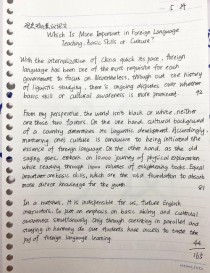 Which Is More Important in Foreign Language
Teaching, Basic Skills or Culture?
With the internalization of China quick its pace, foreign
language has been one of the most requisite for each
government to focus on. Nevertheless, through out one history
of linguistic studying, there's ongoing disputes over whether
basic skill or cultural awareness is more prominent.
From my perspective, the world isn't black or white, neither
are these two factors. On the one hand, cultural background
of a country determines its linguistic development. Accordingly,
mastering one's culture is conducive to being initiated the
essence of foreign language. On the other hand, as the old
saying goes, embark on 10000 journey of physical exploration
while reading through 10000 volumes of enlightening books. Equal
important are basic skills, which are the solid foundation to absorb
more direct knowledge for the youth.
81
In a nutshell, it is indispensible for us, future English
instructors, to put an emphasis on basic skills and cultural
awareness simultaneously. Only through combining in parallel and
staying in harmony do our students have access to taste the
joy of foreign language learning.
44